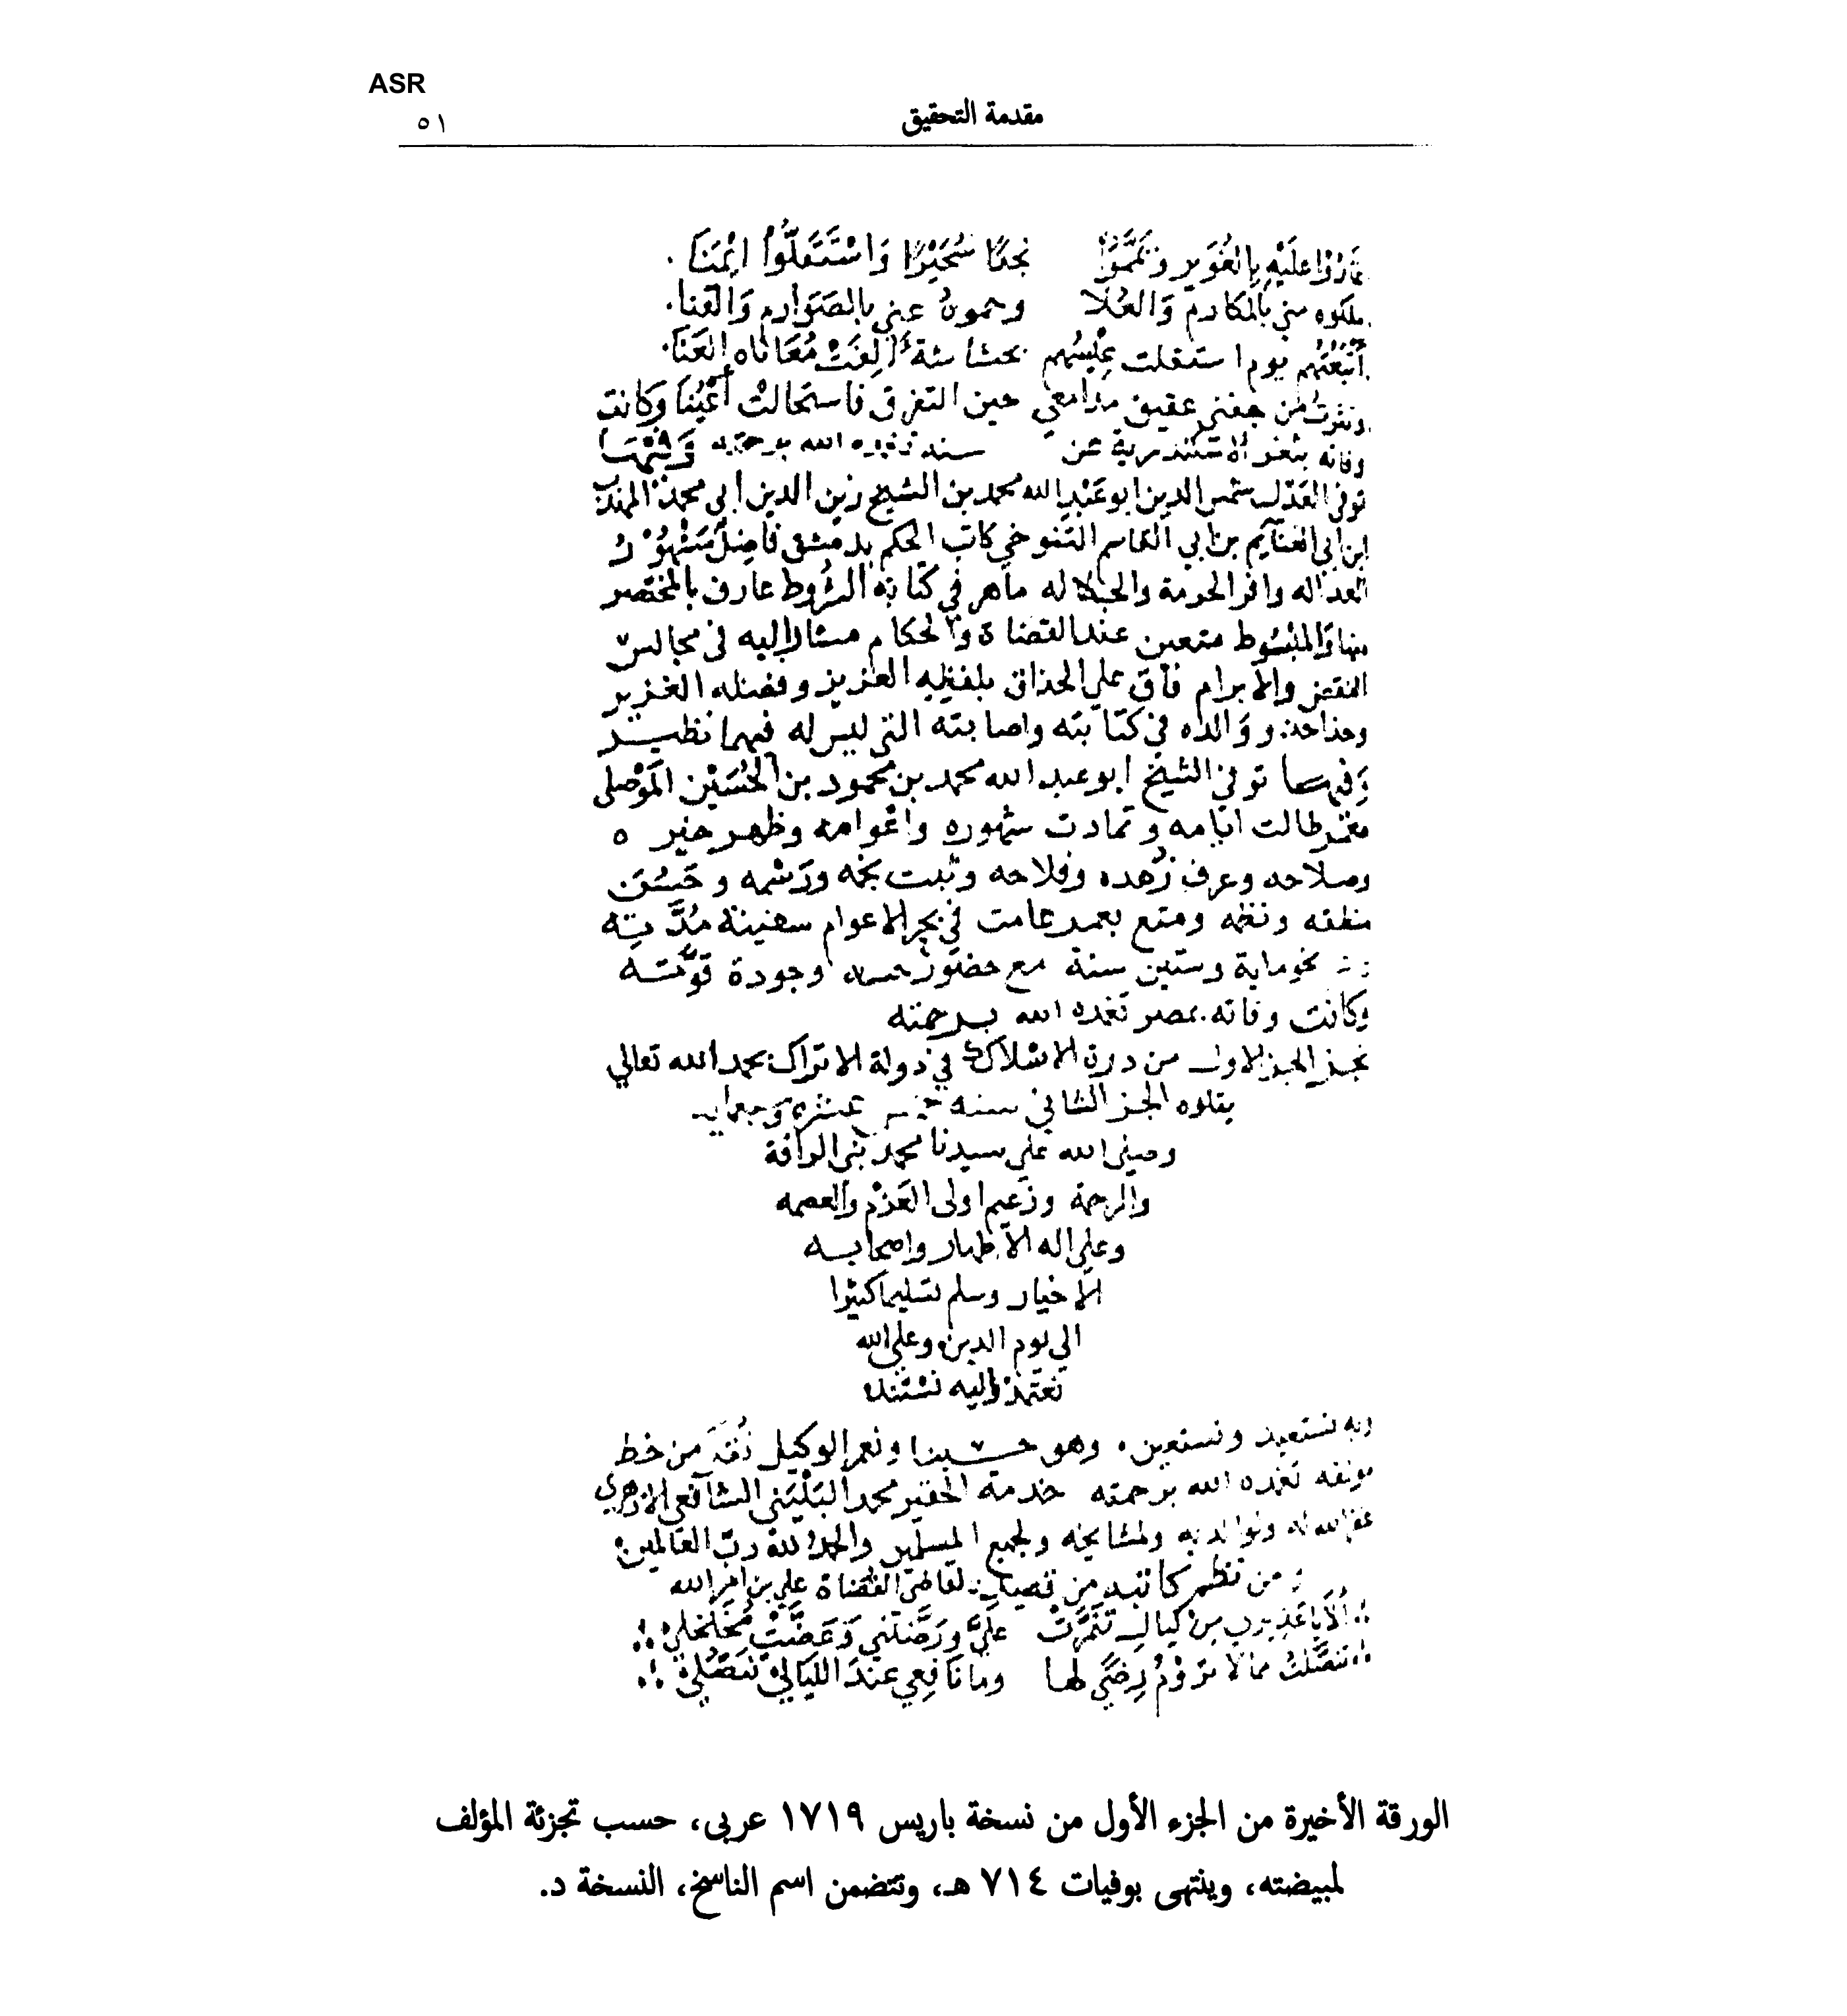 ASR
مقدمة التحقيق
٥١
عليه بالغوير نجدًا سُحَيْرًا
بالمكارم وَالعُلا وحموهُ عني بالصَوارم وَالقنا.
يوم استقلت عِيْسُهم العَنَا.
ونثرتُ من جفني عقيق مدامعي حين التفرق فاستحالتْ أعْيُنَا وكانت
وفاته بثغر الاسكندرية عن سنة تغمده الله برحمته وَفيْهَا
توفي العَدْل شمس الدين ابو عَبْد الله محمد بن الشيخ زين الدين ابي محمد المهذب
ابن ابي الغنآيم بن ابي القاسم التنوخي كاتب الحكم بدمشق فاضِلٌ مَشْهُوْر
العداله وافر الحرمة والجلاله ماهر في كتابة الشُروط عارف بالمختصر
منها وَالمبْسُوط متعين عند القضاة والحكام مشارا اليه في مجالس
النقض والابرام فاق على الحذاق بلفظه العزيز وفضله الغزير
وحذا حذو والده في كتابته واصابته التي ليس له فيهما نظير
وَفيها توفي الشيخ ابو عبد الله محمد بن محمود بن الحُسَيْن المَوْصلى
معمر طالت ايامه وتمادت شهوره واعْوامه وظهر خيره
وصلاحه وعرف زُهده وفلاحه وثبت نجمه ورَسْمه وحَسُنَ
ونظمه ومتع بعمر عامت في بحر الاعوام سفينة مُدَّته
نحو ماية وستين سنة مع حضور حسه وجودة قوَّته
وكانت وفاته بمصر تغمده الله برحمته
نجز الجز الاول من درة الاسْلاك في دولة الاتراك بحمد الله تعالي
يتلوه الجز الثاني سنه خمس عشره وسبعمايه
وصلى الله علي سيدنا محمد نبي الرافة
والرحمة وزعيم اولى العَزْم والعصمه
وعلى اله الاطهار واصحابه
الاخيار وسلم تسليما كثيرًا
الى يوم الدين وعلى الله
نعتَمد واليه نسْتَند
وبه نستعيد ونستعين. وهو حسبنا ونعم الوكيل من خط
مولفه تغمده الله برحمته خدمة الحقير محمد الشافعي الازهري
غفر الله له ولوالديه ولمشايخه ولجميع المسلمين والحمد لله ربّ العالمين
ومن نظم كاتبه من لقاضى القضاة علي بن امر الله
ألا يا عَذِيري مِنْ ليالٍ تنمَّرَتْ عليَّ ورَضَّتني وَعَضَّتْ
تنصَّلتُ مما لا تروْمُ رِضىً لها ومَا نافِعِي عندَ الليَالي تنَصُّلي
الورقة الأخيرة من الجزء الأول من نسخة باريس ١٧١٩ عربى، حسب تجزئة المؤلف
لمبيضته، وينتهى بوفيات ٧١٤ هـ، وتتضمن اسم الناسخ، النسخة د.